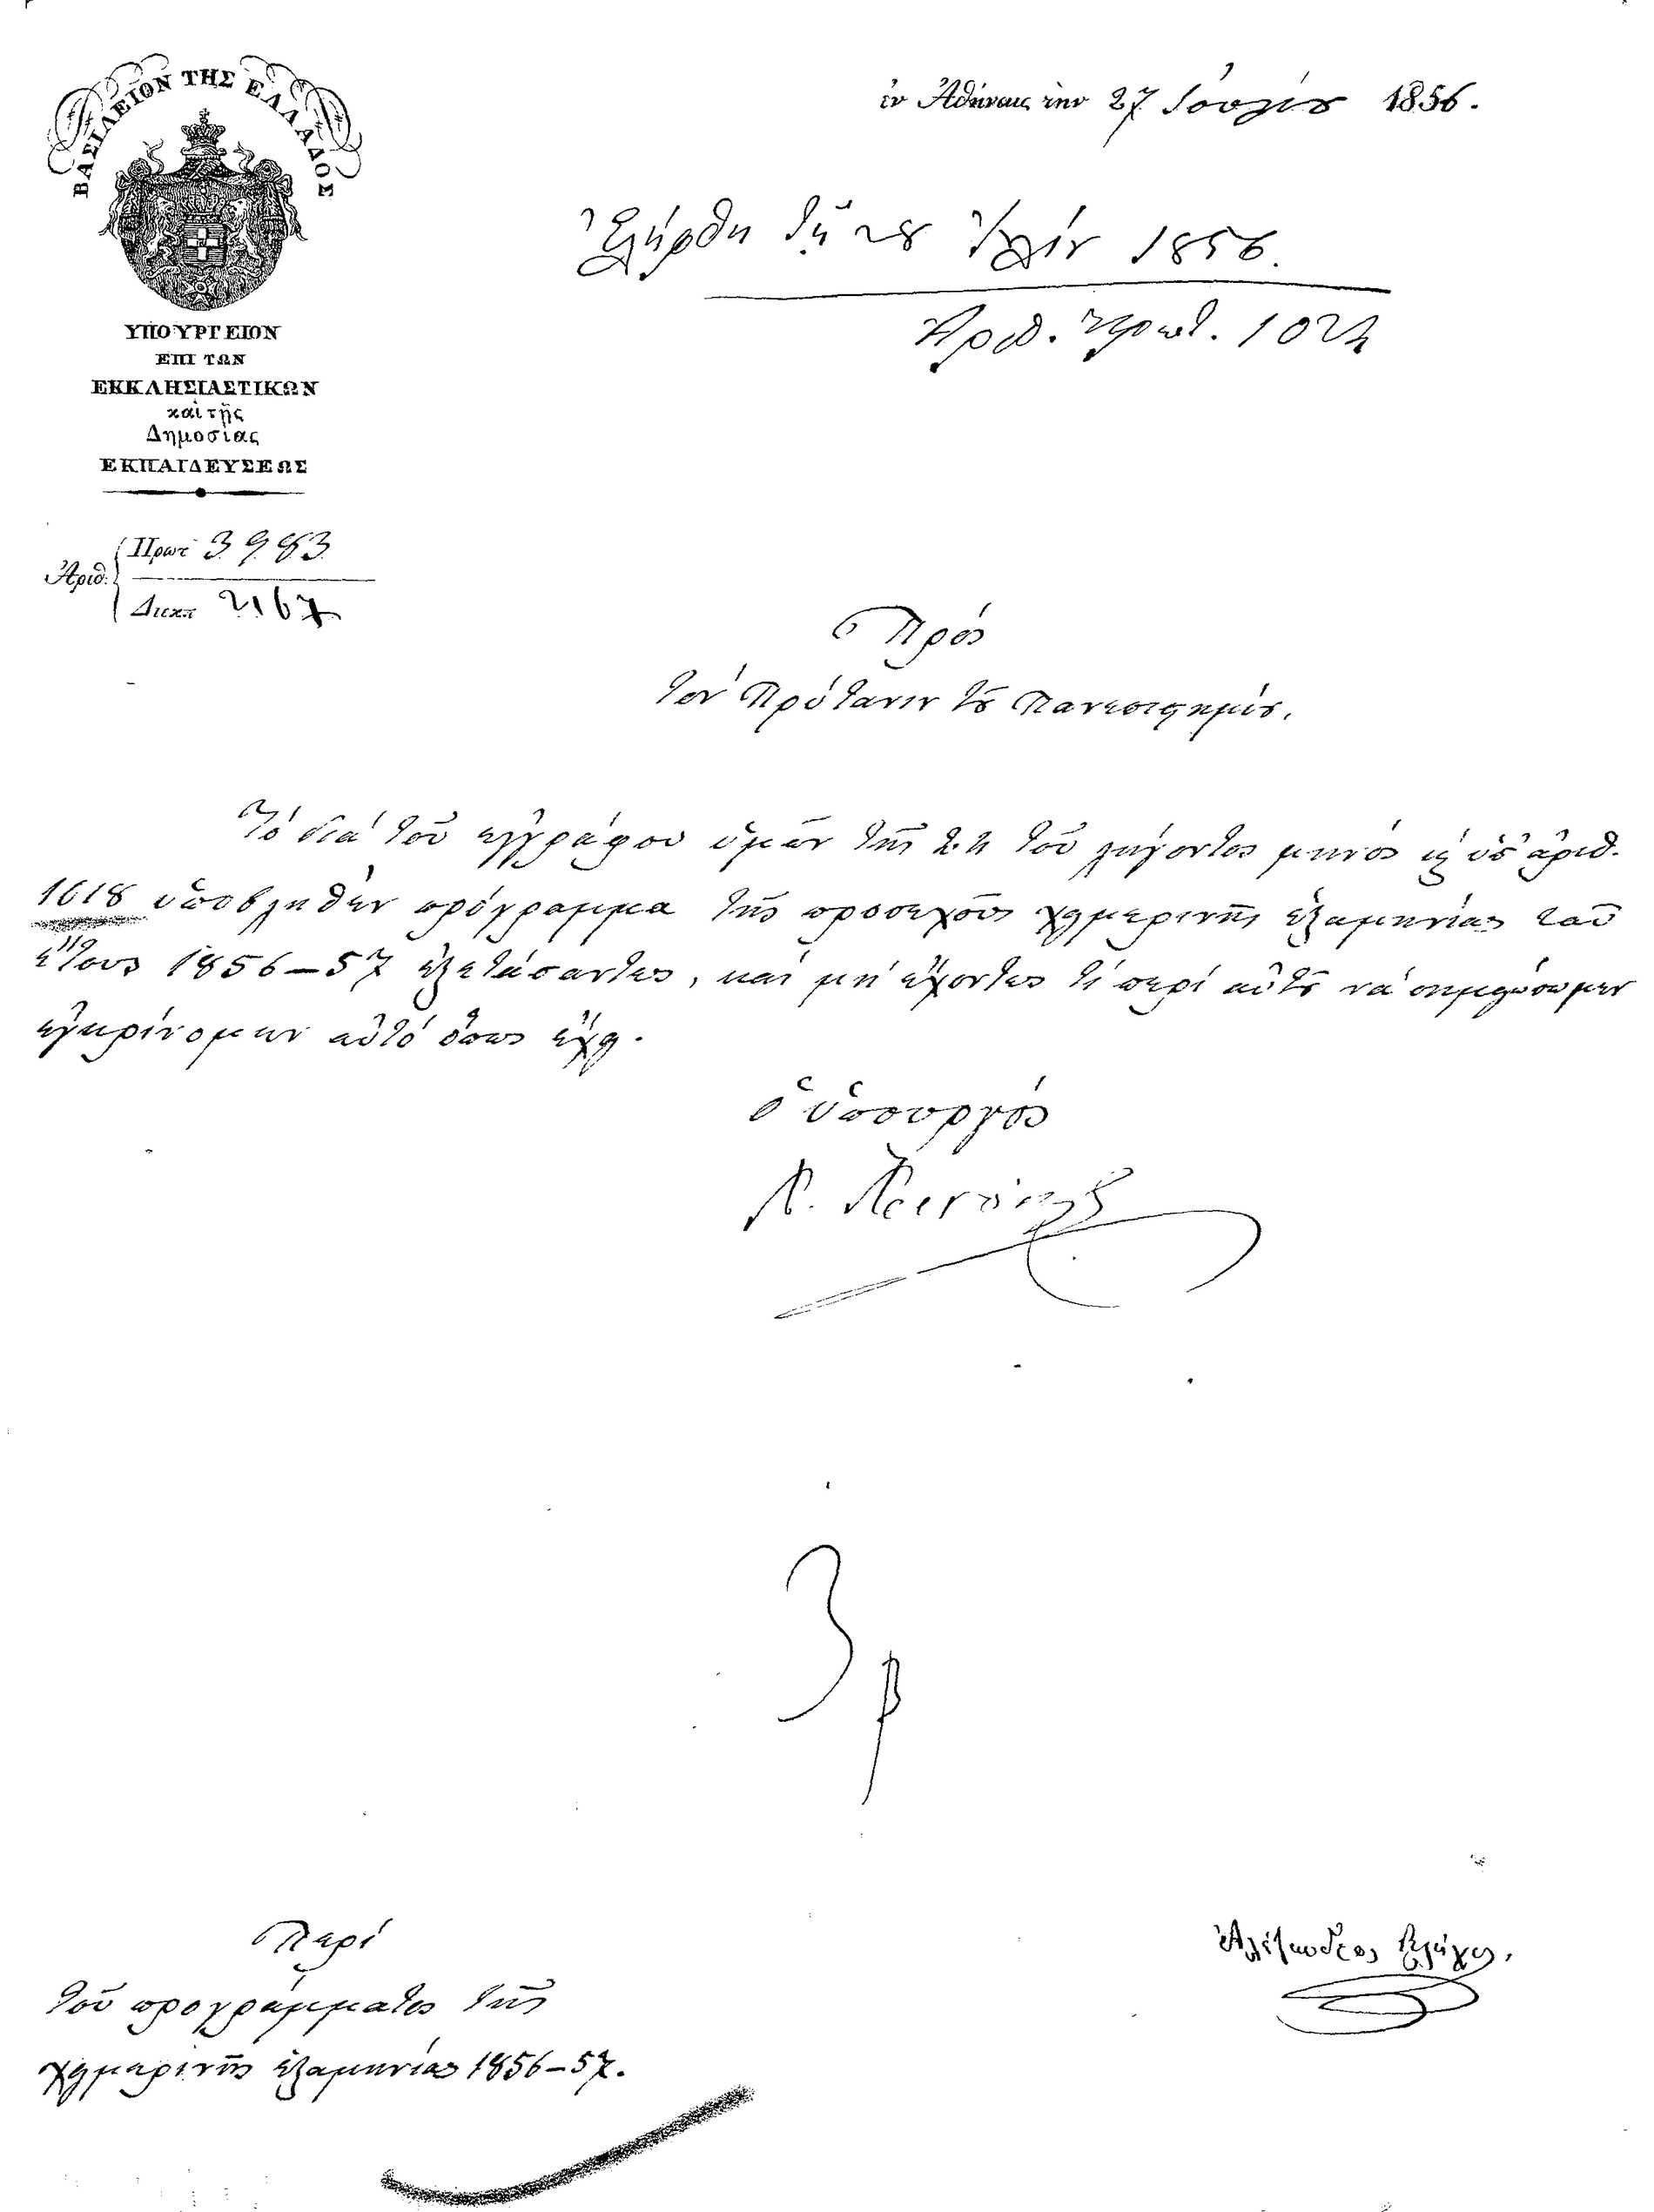 ΒΑΣΙΛΕΙΟΝ ΤΗΣ ΕΛΛΑΔΟΣ
ΥΠΟΥΡΓΕΙΟΝ
ΕΠΙ ΤΩΝ
ΕΚΚΛΗΣΙΑΣΤΙΚΩΝ
καὶ τῆς
Δημοσίας
ΕΚΠΑΙΔΕΥΣΕΩΣ
Ἀριθ. Πρωτ 3983
Διεκπ 2167
ἐν Ἀθήναις την 27 Ἰουλίου 1856.
Ἐλήφθη τῇ 28 Ἰουλίου 1856.
Ἀριθ. Πρωτ. 1024
Πρὸς
τὸν Πρύτανιν τοῦ Πανεπιστημίου.
Τὸ διὰ τοῦ ἐγγράφου ὑμῶν τῆς 24 τοῦ λήγοντος μηνὸς ὑπ' ἀριθ.
1618 ὑποβληθὲν πρόγραμμα τῆς προσεχοῦς χειμερινῆς ἑξαμηνίας τοῦ
ἔτους 1856–57 ἐξετάσαντες, καὶ μὴ ἔχοντές τι περὶ αὐτοῦ νὰ σημειώσωμεν
ἐγκρίνομεν αὐτὸ ὅπως ἔχει.
ὁ ὑπουργὸς
Περὶ
τοῦ προγράμματος τῆς
χειμερινῆς ἑξαμηνίας 1856–57.
Ἀλέξανδρος